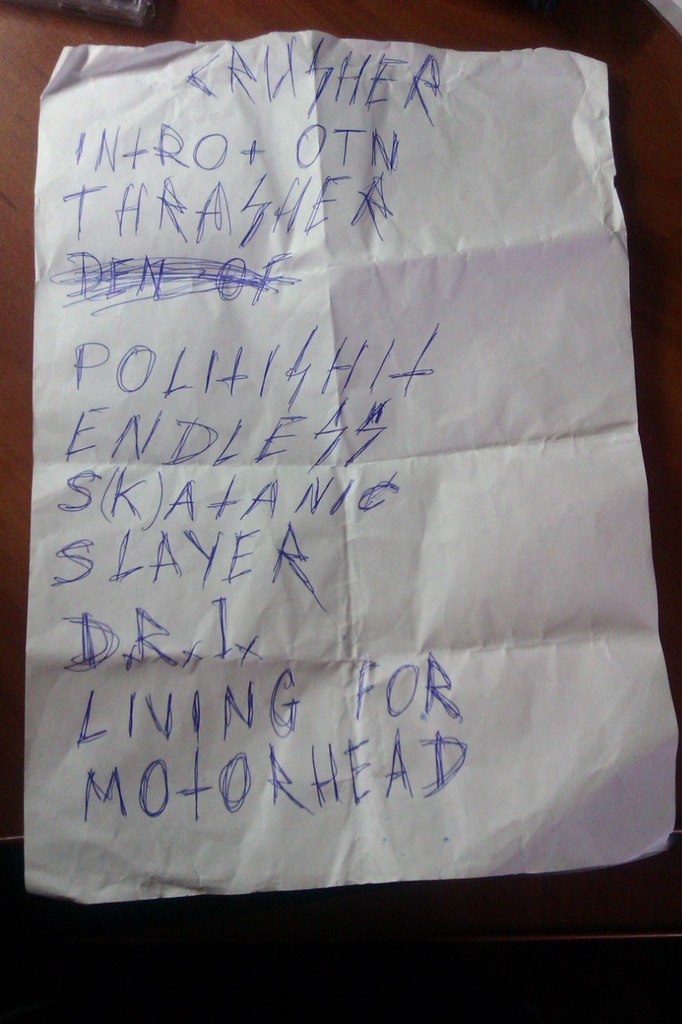 CRUSHER
INTRO + OTN
THRASHER
DEN OF
POLITISHIT
ENDLESS
S(K)ATANIC
SLAYER
D.R.I.
LIVING FOR
MOTORHEAD